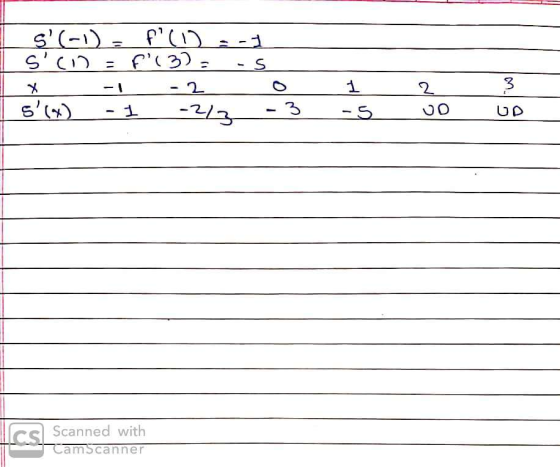 S'(-1) = f'(1) = -1
S'(1) = f'(3) = -5
x -1 -2 0 1 2 3
S'(x) -1 -2/3 -3 -5 UD UD
CS Scanned with CamScanner